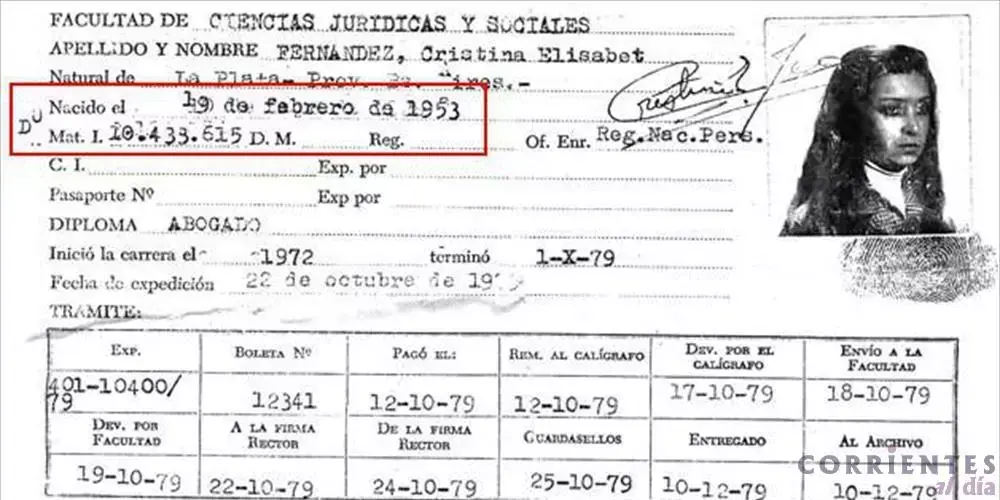 FACULTAD DE CIENCIAS JURIDICAS Y SOCIALES
APELLIDO Y NOMBRE FERNANDEZ, Cristina Elisabet
Natural de La Plata- Prov. Bs. Aires.-
Nacido el 19 de febrero de 1953
DU Mat. I. 10.433.615 D. M. Reg. Of. Enr. Reg.Nac.Pers.
C. I. Exp. por
Pasaporte Nº Exp por
DIPLOMA ABOGADO
Inició la carrera el 1972 terminó 1-X-79
Fecha de expedición 22 de octubre de 19
TRAMITE:
EXP. BOLETA Nº PAGÓ EL: REM. AL CALÍGRAFO DEV. POR EL CALÍGRAFO ENVÍO A LA FACULTAD
401-10400/79 12341 12-10-79 12-10-79 17-10-79 18-10-79
DEV. POR FACULTAD A LA FIRMA RECTOR DE LA FIRMA RECTOR GUARDASELLOS ENTREGADO AL ARCHIVO
19-10-79 22-10-79 24-10-79 25-10-79 10-12-79 10-12-79
CORRIENTES
al día